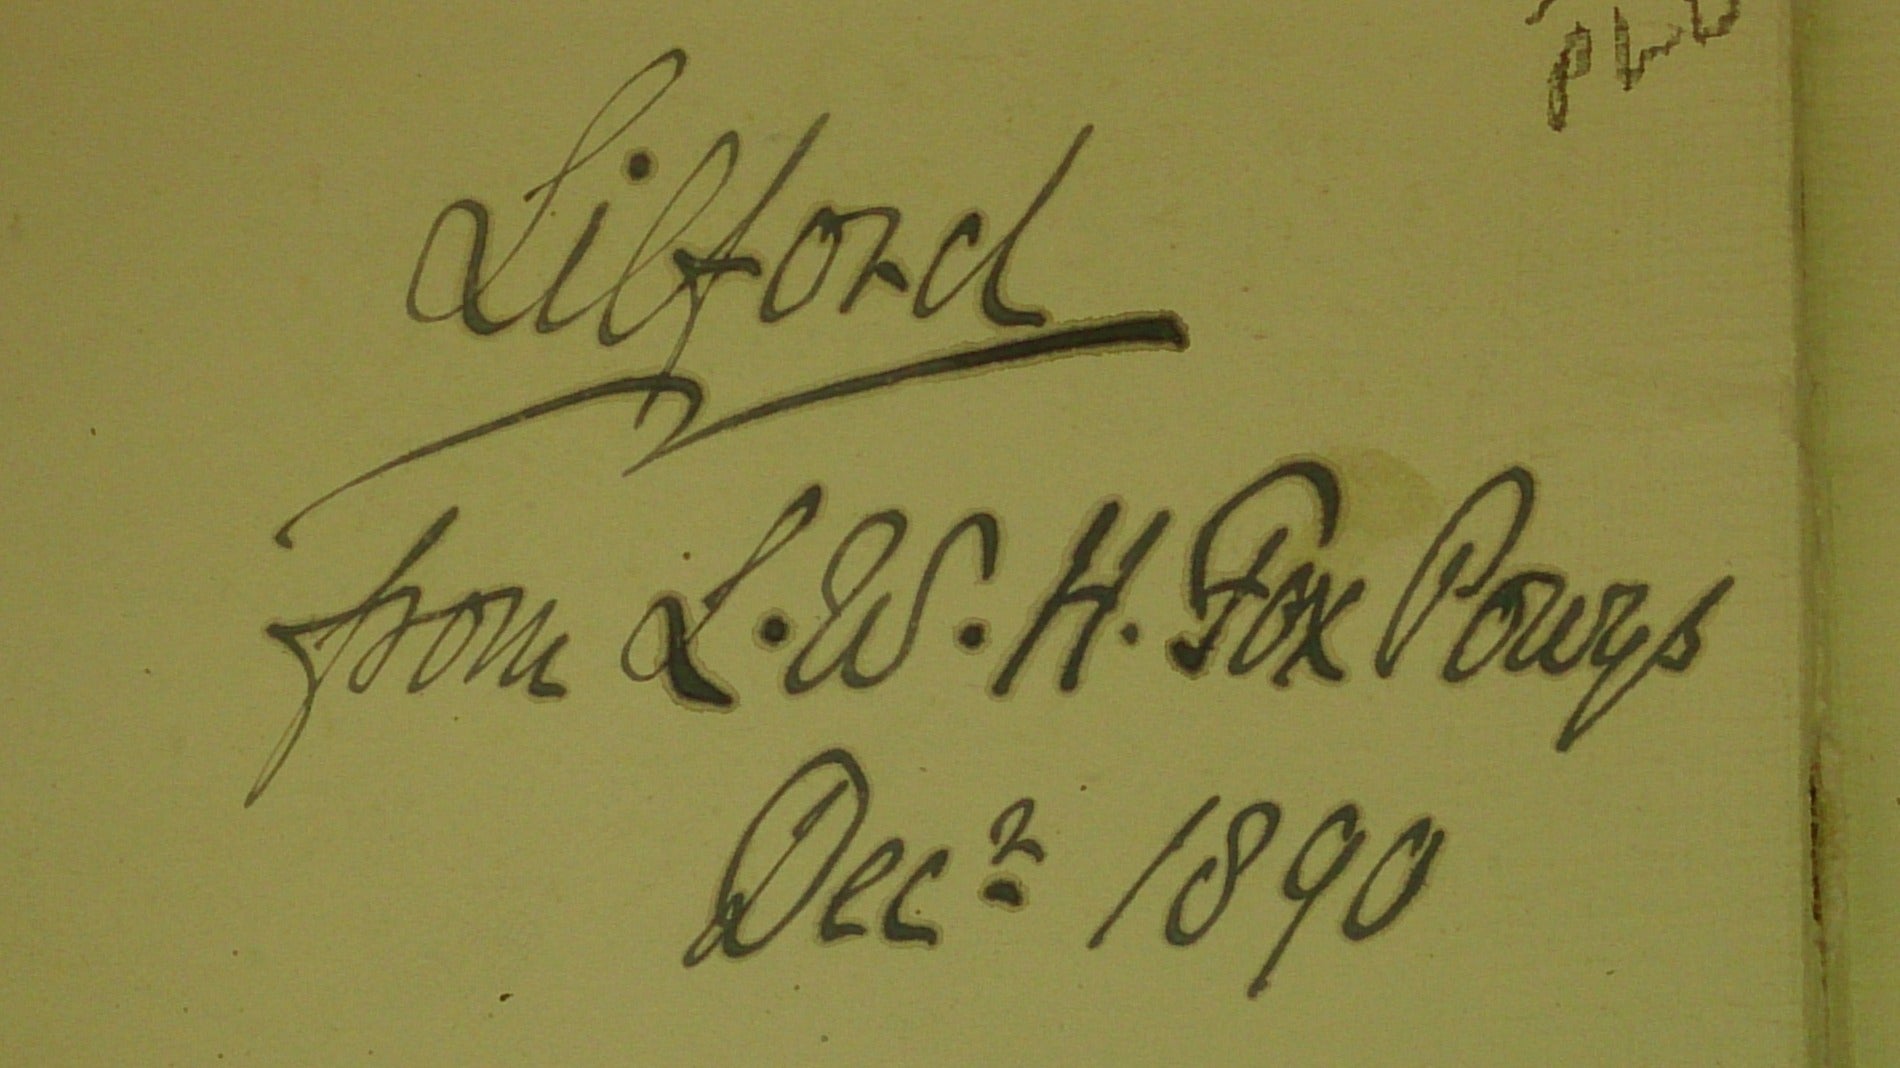 Lilford
from L. W. H. Fox Powys
Decr 1890